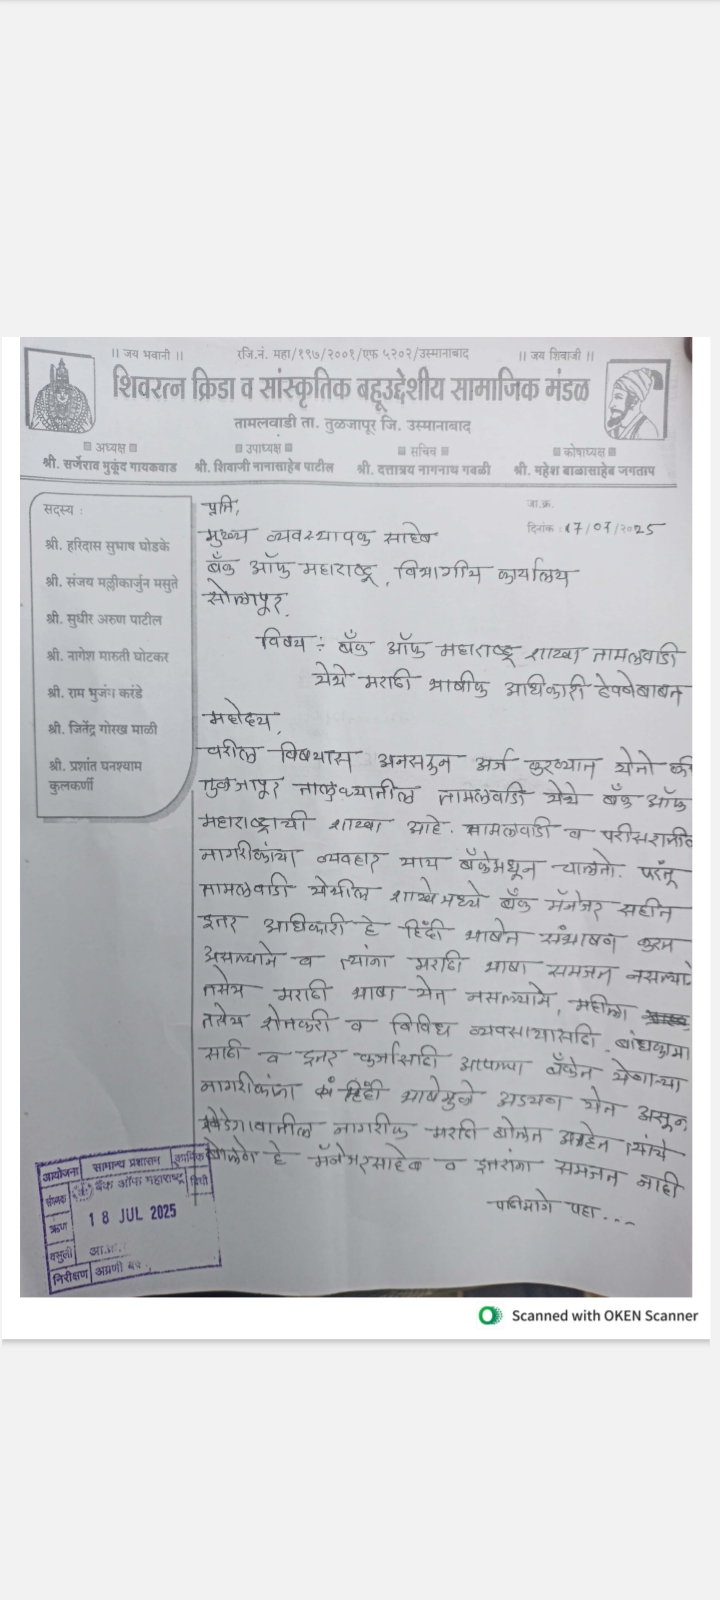 || जय भवानी || रजि.नं. महा/१९७/२००१/एफ ५२०२/उस्मानाबाद || जय शिवाजी ||
शिवरत्न क्रिडा व सांस्कृतिक बहूउद्देशीय सामाजिक मंडळ
तामलवाडी ता. तुळजापूर जि. उस्मानाबाद
अध्यक्ष उपाध्यक्ष सचिव कोषाध्यक्ष
श्री. सर्जेराव मुकूंद गायकवाड श्री. शिवाजी नानासाहेब पाटील श्री. दत्तात्रय नागनाथ गवळी श्री. महेश बाळासाहेब जगताप
सदस्य :
श्री. हरिदास सुभाष घोडके
श्री. संजय मल्लीकार्जुन मसुते
श्री. सुधीर अरुण पाटील
श्री. नागेश मारुती घोटकर
श्री. राम भुजंग करंडे
श्री. जितेंद्र गोरख माळी
श्री. प्रशांत घनश्याम
कुलकर्णी
जा.क्र.
दिनांक : 17/07/2025
प्रति,
मुख्य व्यवस्थापक साहेब
बँक ऑफ महाराष्ट्र, विभागीय कार्यालय
सोलापूर.
विषय : बँक ऑफ महाराष्ट्र शाखा तामलवाडी
येथे मराठी भाषीक अधिकारी ठेवणेबाबत
महोदय,
वरील विषयास अनसरुन अर्ज करण्यात येतो की
तुळजापूर तालुक्यातील तामलवाडी येथे बँक ऑफ
महाराष्ट्राची शाखा आहे. तामलवाडी व परीसरातील
नागरीकांचा व्यवहार याच बँकेमधून चालतो. परंतू
तामलवाडी येथील शाखेमध्ये बँक मॅनेजर सहीत
इतर अधिकारी हे हिंदी भाषेत संभाषण करत
असल्याने व त्यांना मराठी भाषा समजत नसल्याने
तसेच मराठी भाषा येत नसल्याने, महीला
तसेच शेतकरी व विविध व्यवसायासाठी, बांधकामा
साठी व इतर कर्जासाठी आपल्या बँकेत येणाऱ्या
नागरीकांना हिंदी भाषेमुळे अडचण येत असून
खेडेगावातील नागरीक मराठी बोलत आहेत त्यांचे
बोलणे हे मॅनेजरसाहेब व इतरांना समजत नाही
पाठीमागे पहा...
आयोजना सामान्य प्रशासन कार्मिक
बँक ऑफ महाराष्ट्र विधी
ऋण 18 JUL 2025
वसुली
निरीक्षण अग्रणी बँक
Scanned with OKEN Scanner